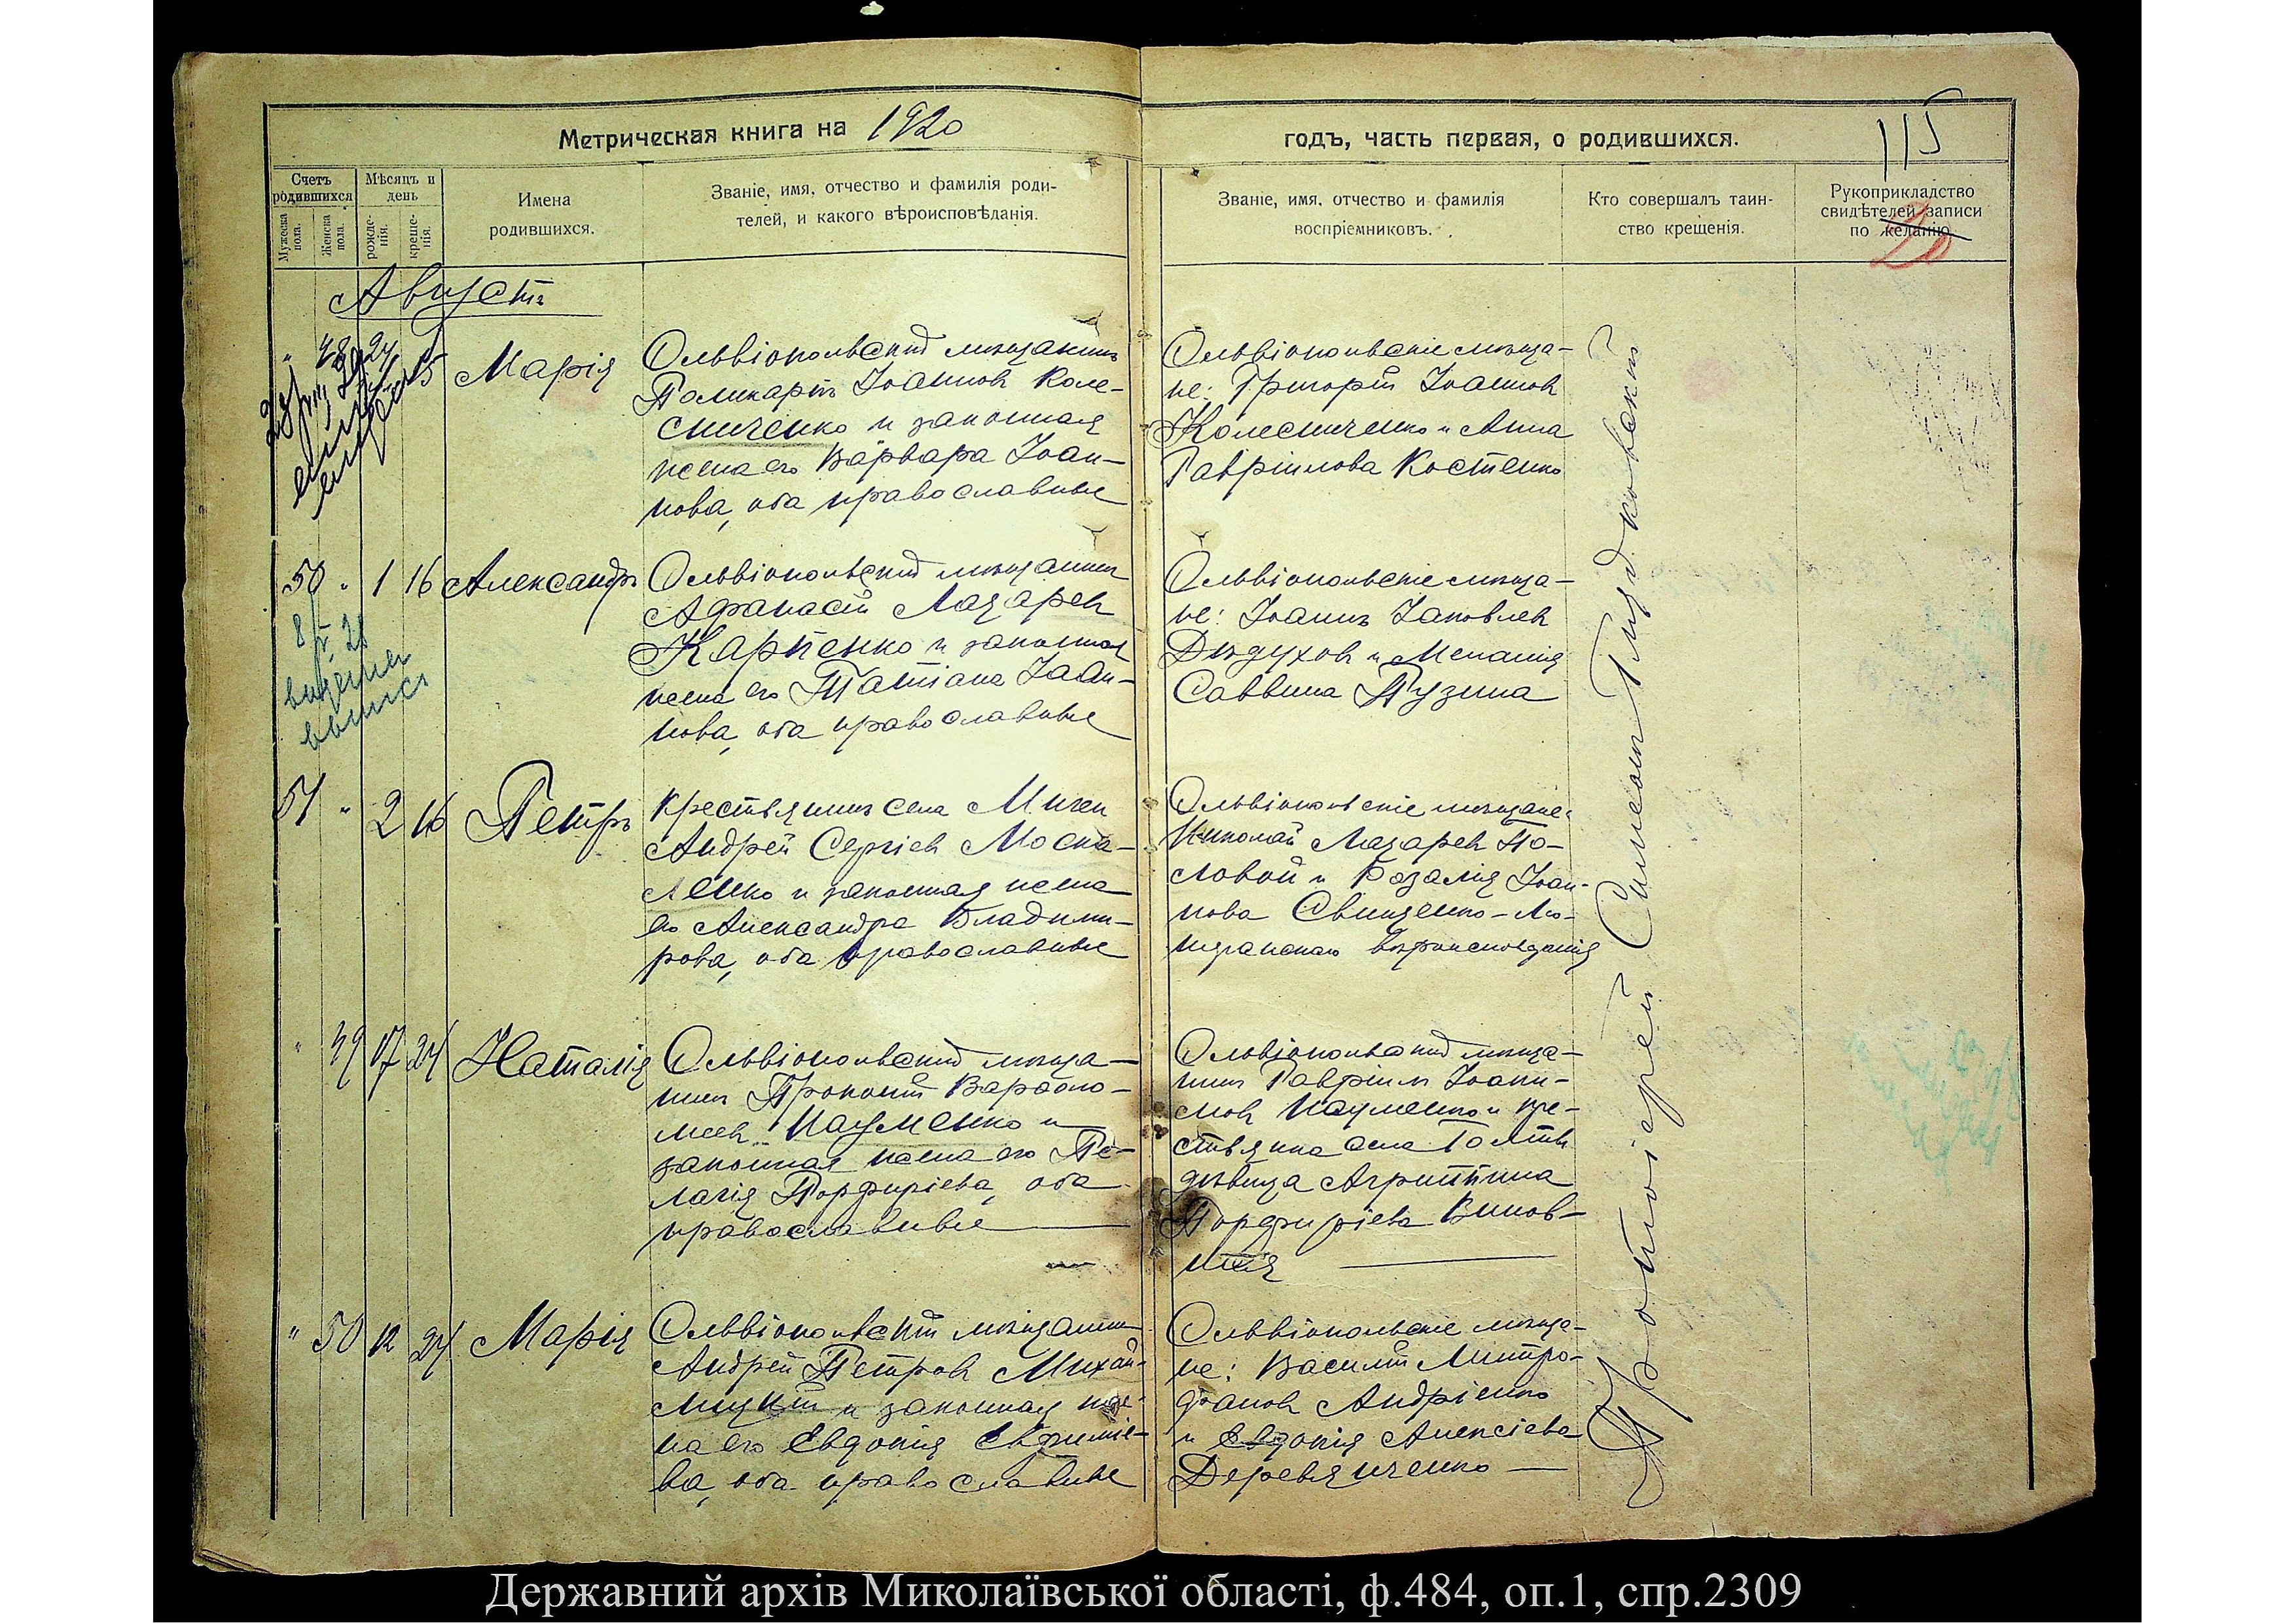 Метрическая книга на 1920
годъ, часть первая, о родившихся.
115
Счетъ родившихся
Мужеска пола.
Женска пола.
Мѣсяцъ и день
рожденія.
крещенія.
Имена
родившихся.
Званіе, имя, отчество и фамилія роди-
телей, и какого вѣроисповѣданія.
Званіе, имя, отчество и фамилія
воспріемниковъ.
Кто совершалъ таин-
ство крещенія.
Рукоприкладство
свидѣтелей записи
по желанію
20
Августъ
Марія
Ольвіопольскій мѣщанинъ
Поликарпъ Іоанновъ Коле-
сниченко и законная
жена его Варвара Іоан-
нова, оба православные
Ольвіопольскіе мѣща-
не: Григорій Іоанновъ
Колесниченко и Анна
Гавріилова Костенко
50 " 1 16 Александръ
Ольвіопольскій мѣщанинъ
Афанасій Лазаревъ
Карпенко и законная
жена его Татіана Іоан-
нова, оба православные
Ольвіопольскіе мѣща-
не: Іоаннъ Іаковлевъ
Дѣдуховъ и Меланія
Саввина Пузина
51 " 2 16 Петръ
Крестьянинъ села Мигеи
Андрей Сергіевъ Моска-
ленко и законная жена
его Александра Владими-
рова, оба православные
Ольвіопольскіе мѣщане:
Николай Лазаревъ По-
ловой и Розалія Іоан-
нова Свищенко - Лю-
теранскаго вѣроисповѣданія
" 49 17 24 Наталія
Ольвіопольскій мѣща-
нинъ Прокопій Варфоло-
меевъ Науменко и
законная жена его Пе-
лагія Порфиріева, оба
православные
Ольвіопольскій мѣща-
нинъ Гавріилъ Іоанн-
овъ Науменко и кре-
стьянка села Голты
дѣвица Агриппина
Порфиріева Винов-
" 50 12 24 Марія
Ольвіопольскій мѣщанинъ
Андрей Петровъ Михай-
лицкій и законная же-
на его Евдокія Евфиміе-
ва, оба православные
Ольвіопольскіе мѣща-
не: Василій Митро-
фановъ Андріенко
и Евдокія Алексіева
Деревянченко
Протоіерей Симеонъ
Державний архів Миколаївської області, ф.484, оп.1, спр.2309